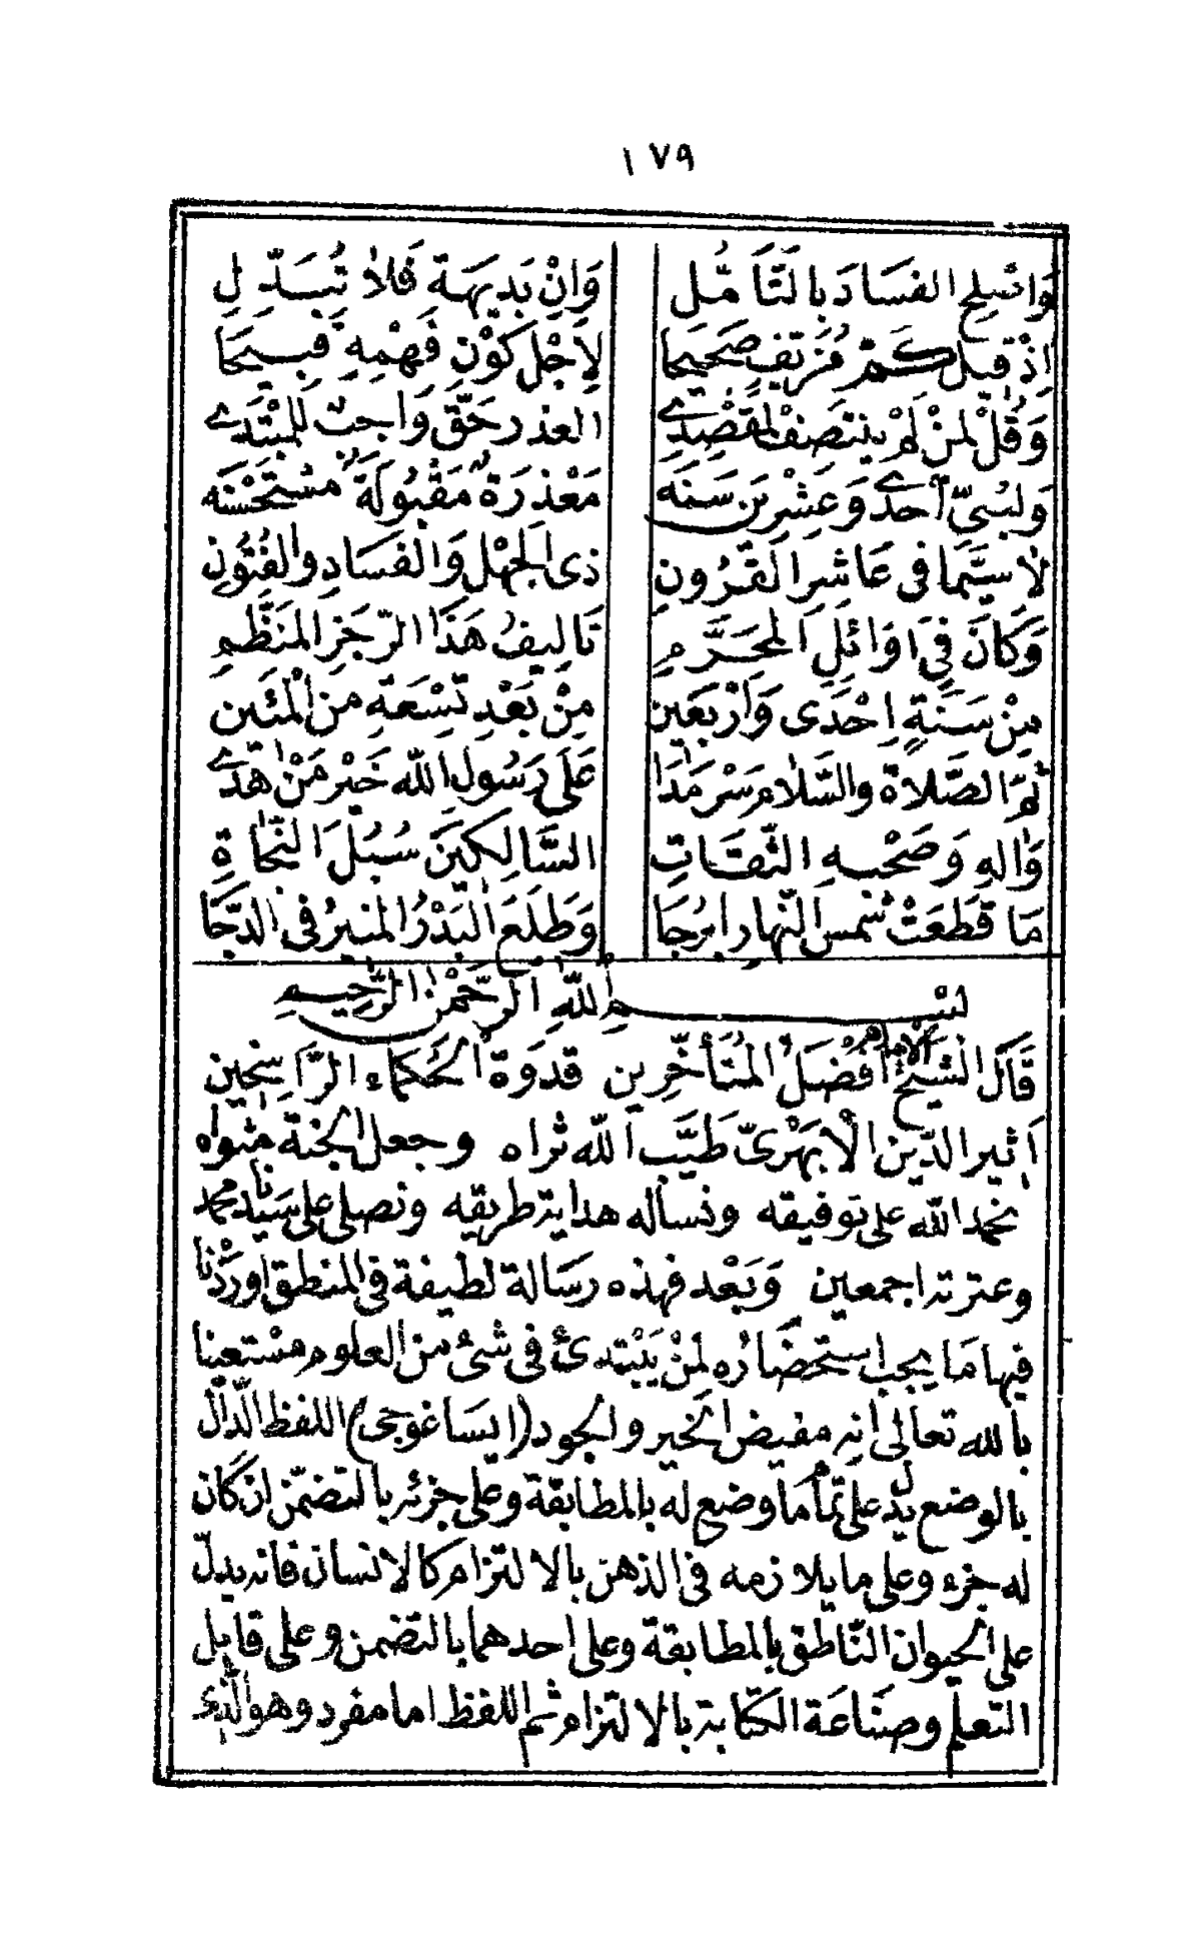 ١٧٩
وَاصْلِحِ الفَسَادَ بِالتَّأَمُّلِ وَاِنْ بَدِيهَةً فَلَا تُبَدِّلِ
اِذْ قِيلَ كَمْ مُزَيِّفٍ صَحِيحَا لِاَجْلِ كَوْنِ فَهْمِهِ قَبِيحَا
وَقُلْ لِمَنْ لَمْ يَنْتَصِفْ لِمَقْصِدِي العذر حَقٌّ وَاجِبٌ لِلْمُبْتَدِي
وَلِبَنِي اَحْدَى وَعِشْرِينَ سَنَه مَعْذِرَةٌ مَقْبُولَةٌ مُسْتَحْسَنَه
لا سِيَّمَا فى عَاشِرِ القُرُونِ ذى الجَهْلِ وَالْفَسَادِ وَالفُتُونِ
وَكَانَ فِى اَوَائِلِ المُحَرَّمِ تَالِيفُ هَذَا الرَّجَزِ المُنَظَّمِ
مِنْ سَنَةٍ اِحْدَى وَاَرْبَعِين مِنْ بَعْدِ تِسْعَةٍ مِنَ الْمِئَين
ثُمَّ الصَّلاةُ والسَّلامُ سَرْمَدَا عَلَى رَسُولِ اللّه خَيْرِ مَنْ هَدَى
وَاٰلِهِ وَصَحْبِهِ الثِّقَاتِ السَّالِكِينَ سُبُلَ النَّجَاةِ
مَا قَطَعَتْ شَمسُ النَّهارِ اَبْرُجَا وَطَلَعَ الْبَدْرُ المُنيرُ فى الدُّجَا
بسْمِ اللّٰهِ الرَّحْمٰنِ الرَّحِيمِ
قَالَ الشَّيْخُ الامام اَفْضَلُ المُتَأَخِّرين قدوَةُ الحُكَماء الرَّاسِخين
اَثير الدِّين الْاَبْهَرِىّ طَيَّبَ اللّه ثراه وجعل الجنة مثواه
نحمد اللّه على توفيقه ونسأله هداية طريقه ونصلى على سَيِّدنا محمد
وعترته اجمعين وَبَعْد فهذه رسَالة لطيفة فى المنطق اوردْنا
فيها مَا يجب استحضَارُه لِمَنْ يَبْتدئ فى شئ من العلوم مُسْتعينا
بالله تعالى انه مفيض الخير والجود (ايسَاغوجى) اللفظ الدّالّ
بالوضع يدلّ على تمام مَا وضع له بالمطابقة وعلى جزئه بالتضمّن ان كان
له جزء وعلى ما يلازمه فى الذهن بالالتزام كالانسان فانه يدلّ
على الحيوان النّاطق بالمطابقة وعلى احدهما بالتضمن وعلى قابل
التعلم وصنَاعَة الكتابة بالالتزام ثم اللفظ اما مفرد وهو الَّذى